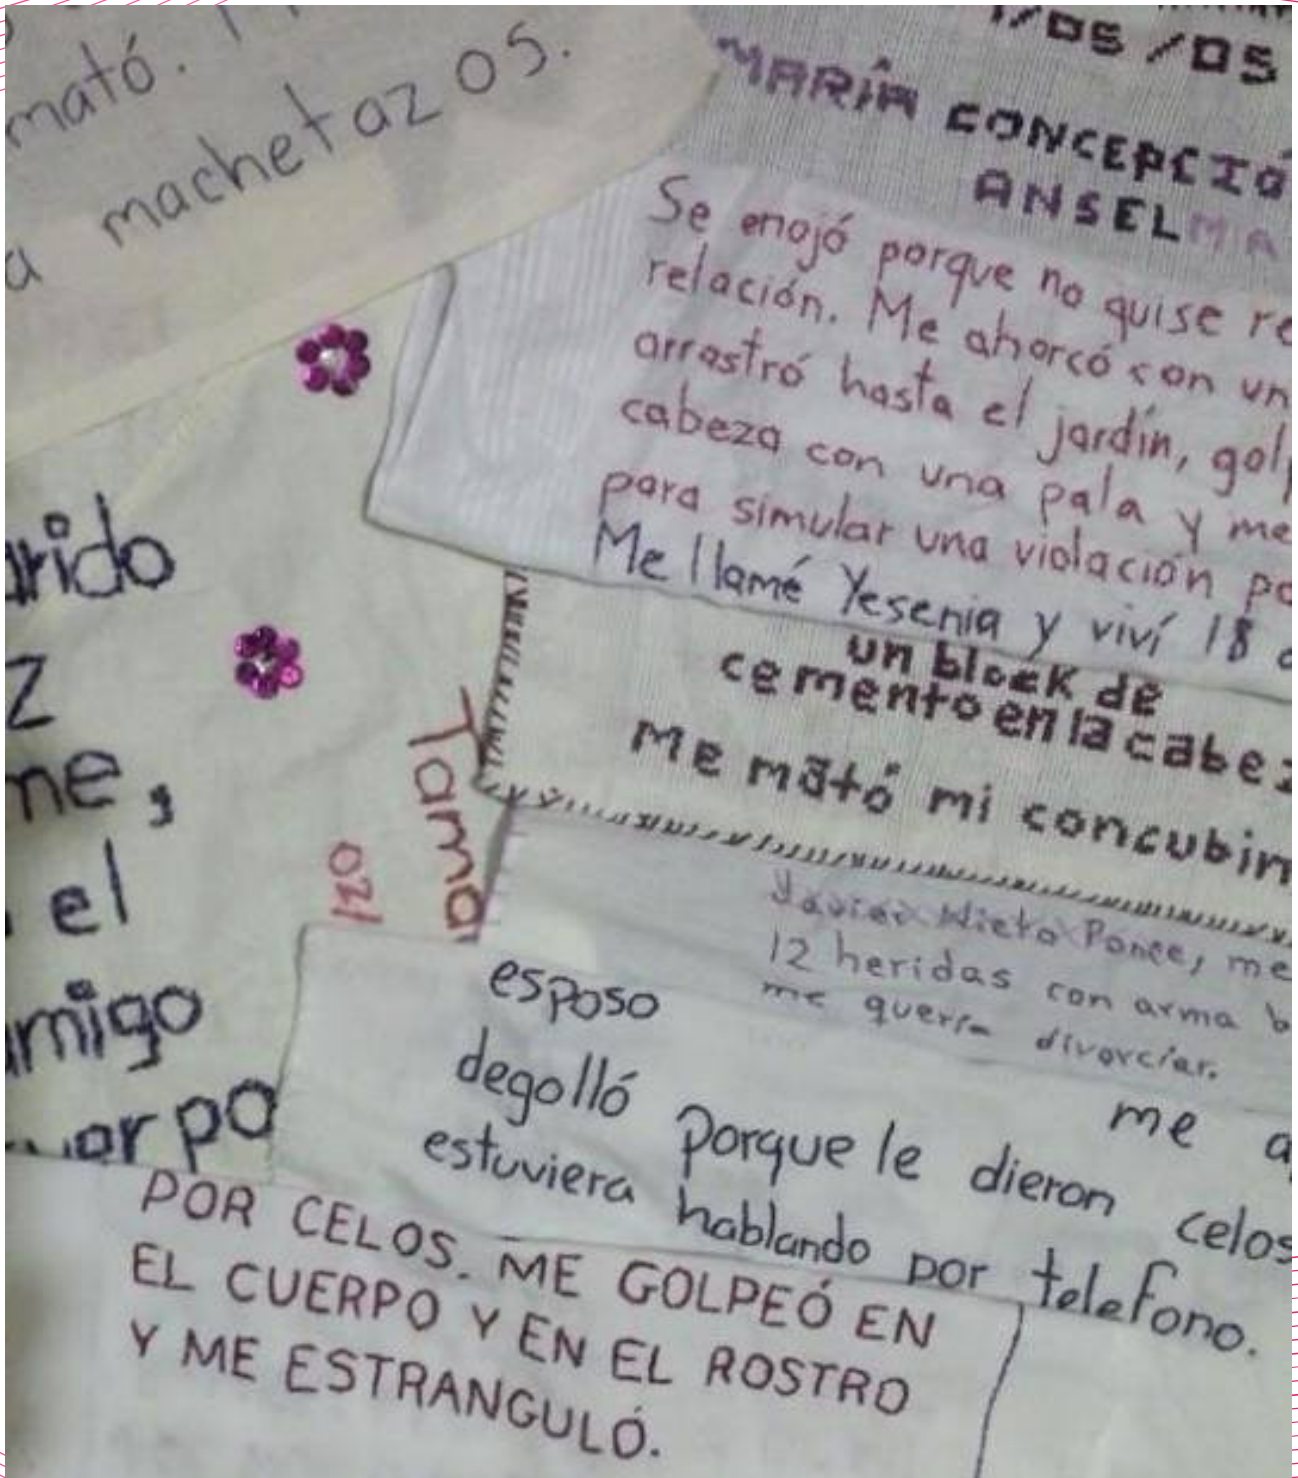 mató.
a machetazos.
/05/05
MARÍA CONCEPCIÓ
ANSELMA
Se enojó porque no quise re
relación. Me ahorcó con un
arrastró hasta el jardín, golp
cabeza con una pala y me
para simular una violación po
Me llamé Yesenia y viví 18 a
un block de
cemento en la cabez
Me mató mi concubin
Javier Nieto Ponce, me
12 heridas con arma b
me quería divorciar.
rido
z
me,
el
migo
uerpo
Tama
esposo
me a
degolló porque le dieron celos
estuviera hablando por telefono.
POR CELOS. ME GOLPEÓ EN
EL CUERPO Y EN EL ROSTRO
Y ME ESTRANGULÓ.